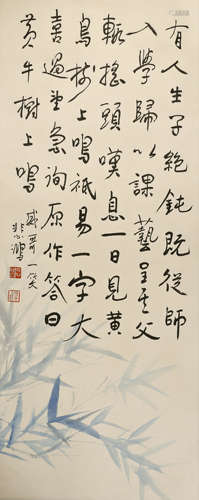 有人生子絕鈍既從師
入學歸以課藝呈其父
輒搖頭嘆息一日見黃
鳥樹上鳴祇易一字大
喜過望急詢原作答曰
黃牛樹上鳴
悲鴻